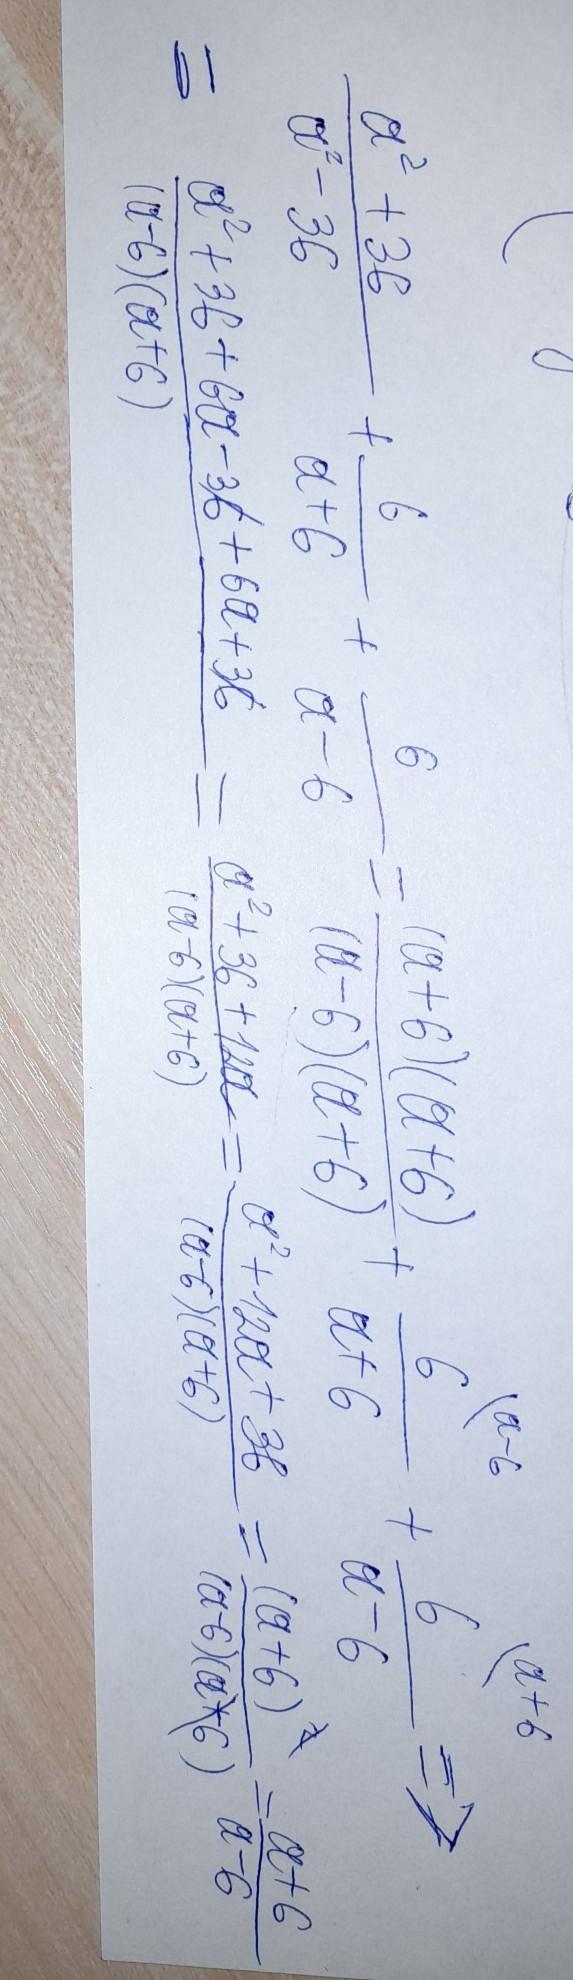 a²+36/a²-36 + 6/a+6 + 6/a-6 = (a+6)(a+6)/(a-6)(a+6) + 6(a-6/a+6 + 6(a+6/a-6 =>
= a²+36+6a-36+6a+36/(a-6)(a+6) = a²+36+12a/(a-6)(a+6) = a²+12a+36/(a-6)(a+6) = (a+6)²/(a-6)(a+6) = a+6/a-6